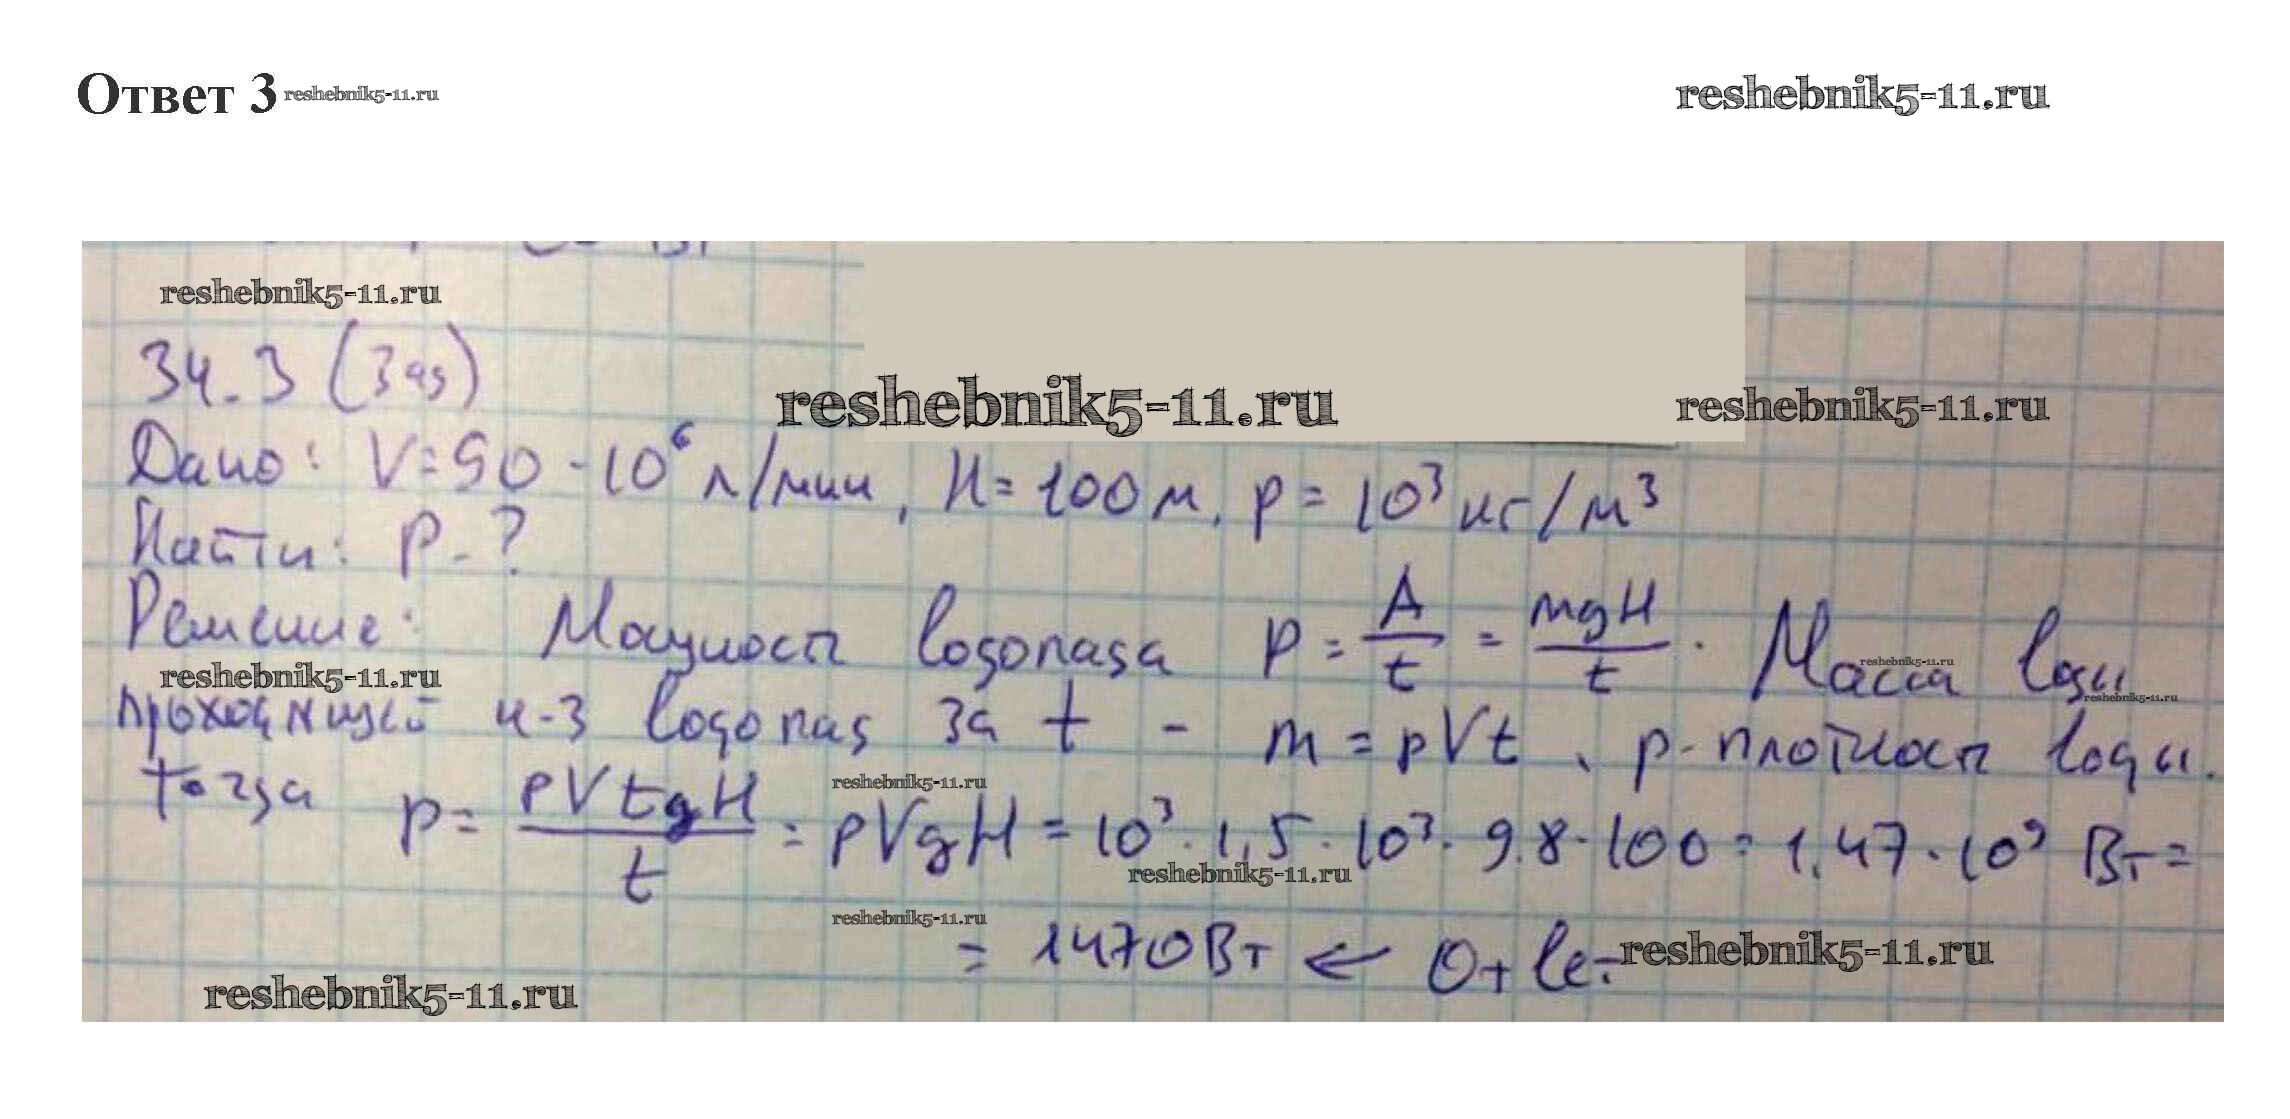 Ответ 3 reshebnik5-11.ru reshebnik5-11.ru
reshebnik5-11.ru
34.3 (Зад)
reshebnik5-11.ru reshebnik5-11.ru
Дано: V=90·10⁶ л/мин, H=100м, ρ=10³кг/м³
Найти: P-?
Решение: Мощность водопада P = A/t = mgH/t. Масса воды
reshebnik5-11.ru reshebnik5-11.ru reshebnik5-11.ru
проходящей ч-з водопад за t - m=ρVt, ρ-плотность воды.
reshebnik5-11.ru
Тогда P= ρVtgH/t = ρVgH = 10³·1,5·10³·9.8·100=1.47·10⁹ Вт=
reshebnik5-11.ru
reshebnik5-11.ru
= 1470Вт ← Ответ reshebnik5-11.ru
reshebnik5-11.ru